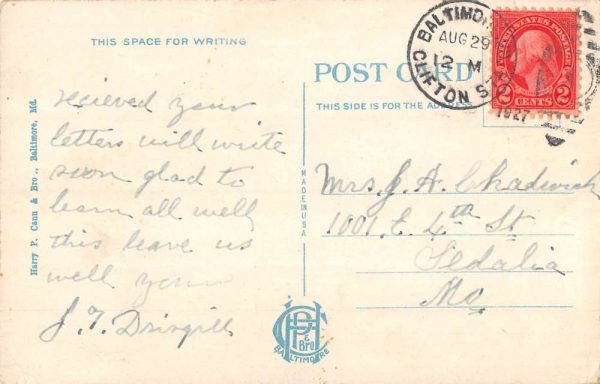 THIS SPACE FOR WRITING
recieved your
letters will write
soon glad to
learn all well
this leave us
well yours
Harry P. Cann & Bro., Baltimore, Md.
MADE IN USA
POST CARD
THIS SIDE IS FOR THE
BALTIMORE
AUG 29
12 M
CLIFTON S
1927
UNITED STATES POSTAGE
2 CENTS 2
Mrs. J. A. Chadwick
1001. E. 4th St
Sedalia
Mo
& Bro
BALTIMORE